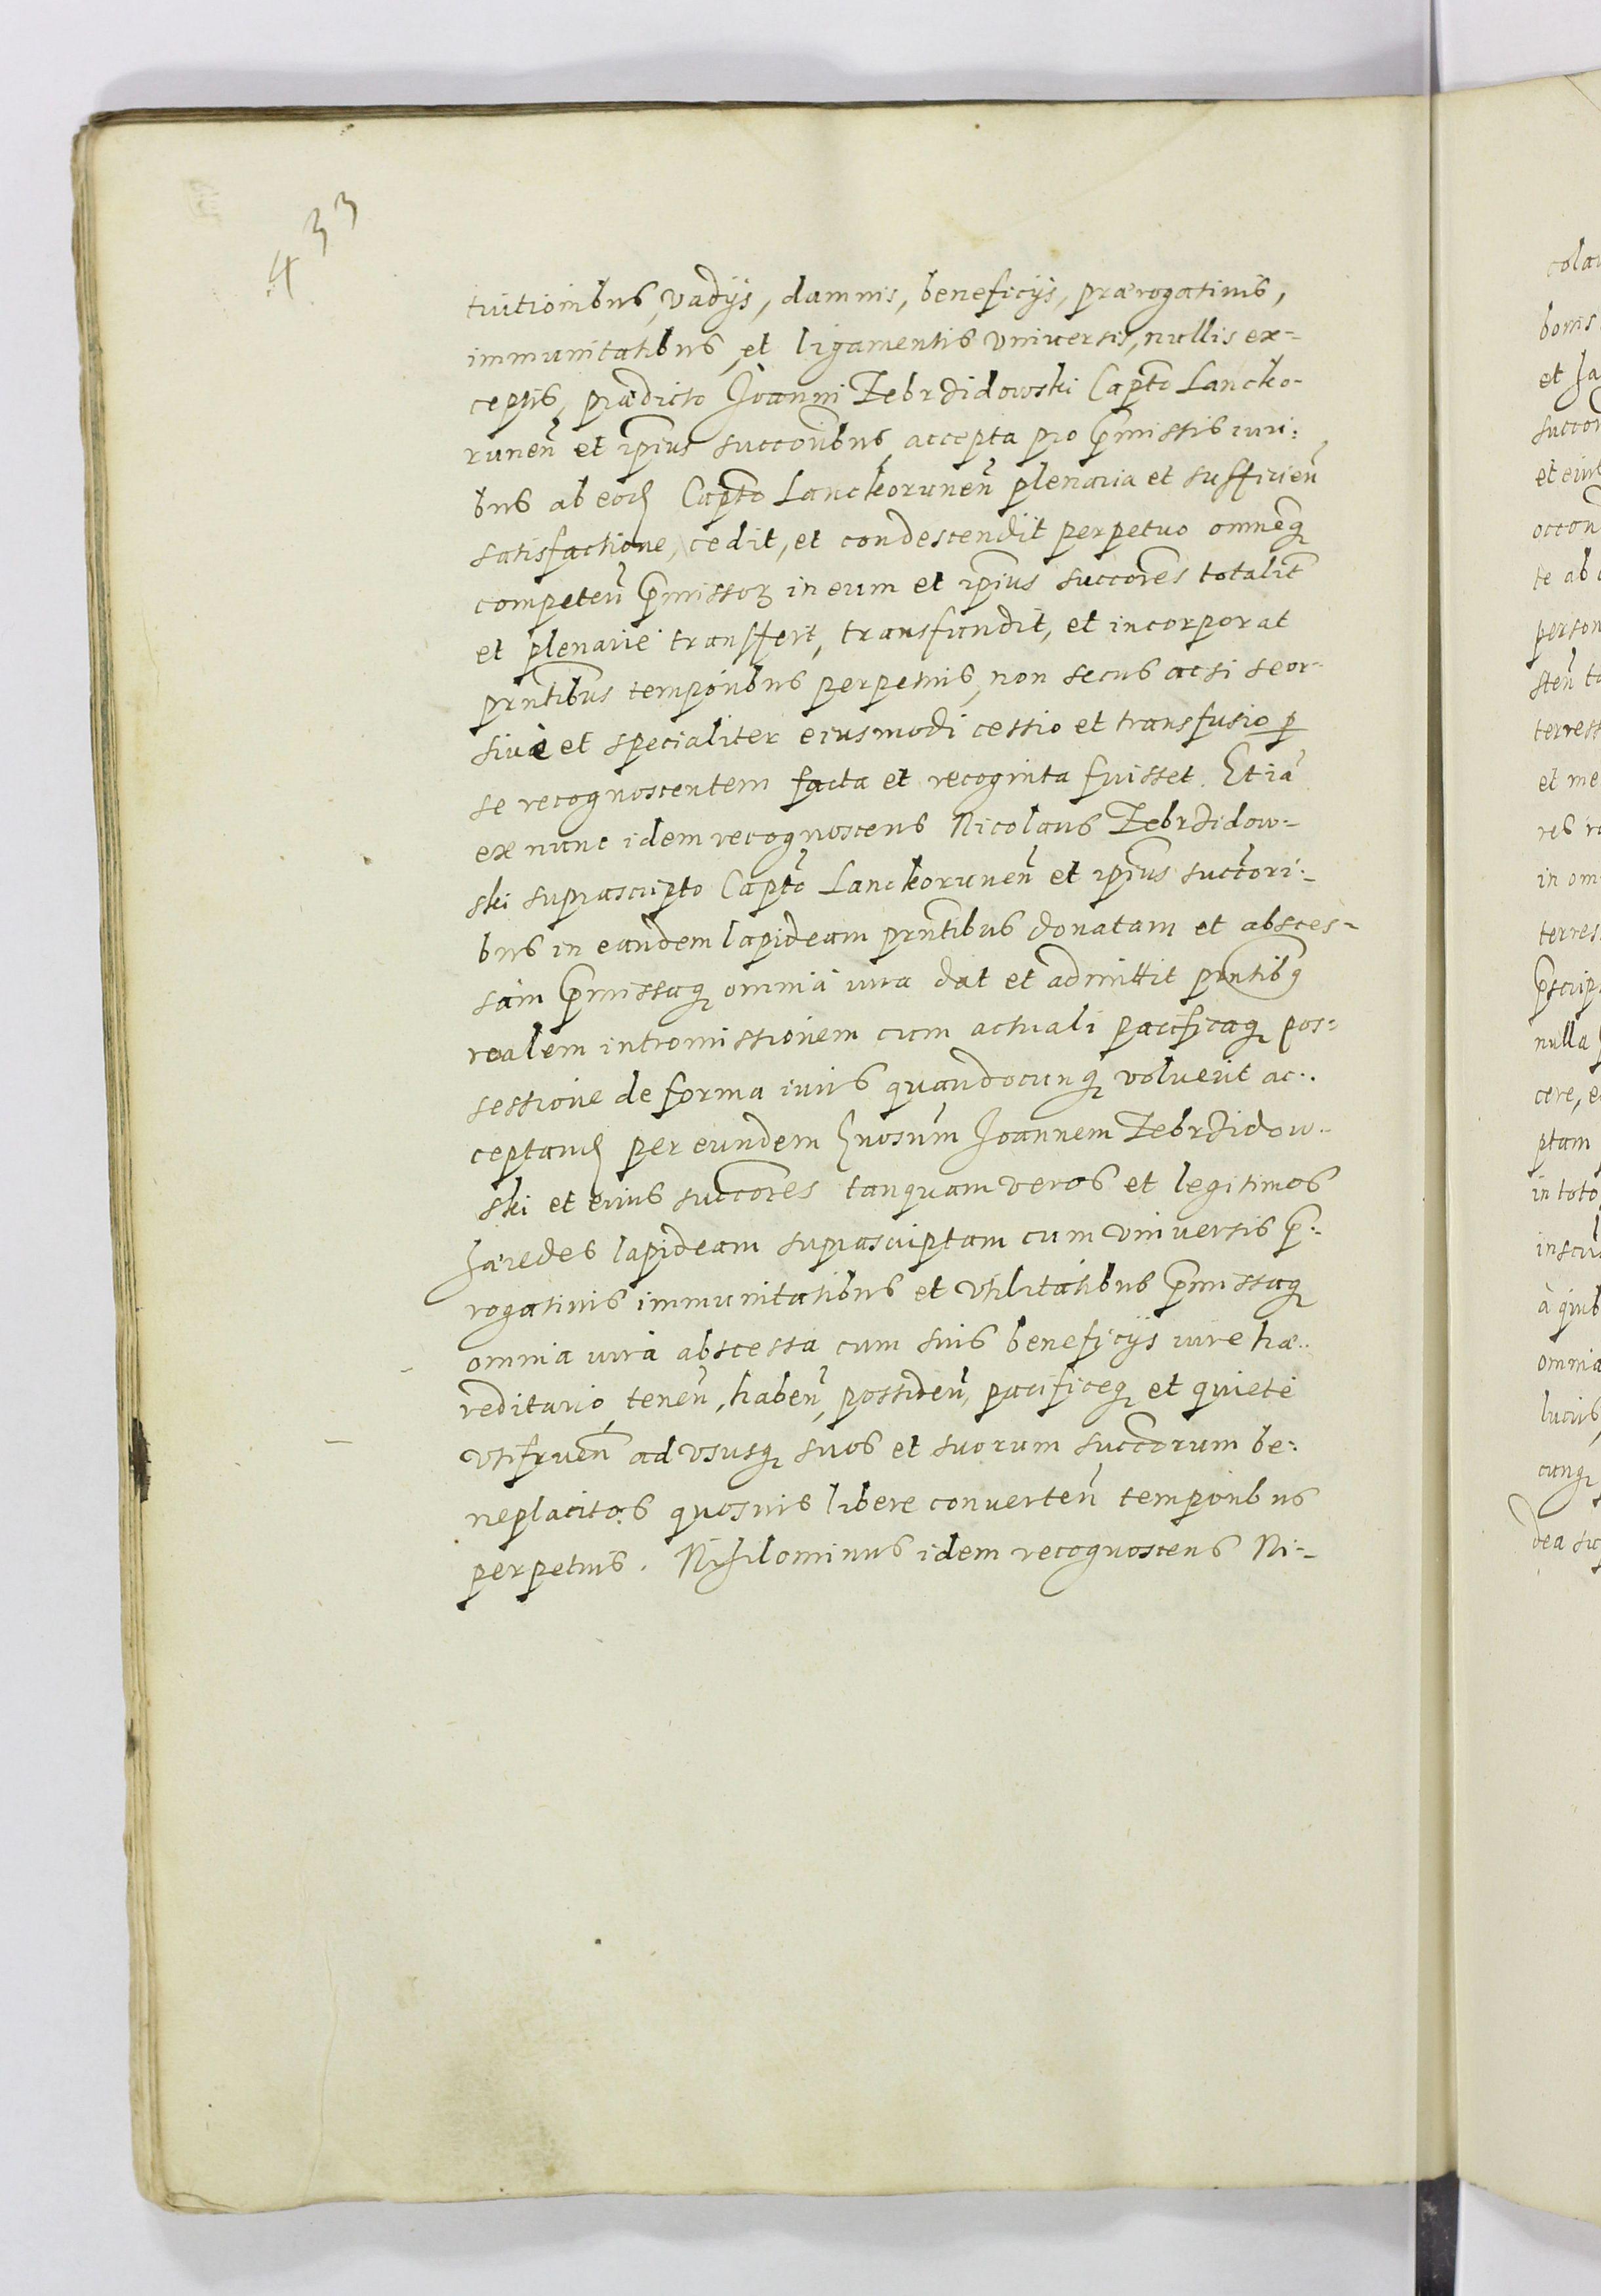 433
tuitionibus, vadijs, damnis, beneficijs, prærogatiuis,
immunitatibus, et ligamentis vniuersis, nullis ex-
ceptis, prædicto Joanni Zebrzidowski Capto Lancko-
runen̄ et ip̄ius succoribus, accepta pro p̄missis iuri:
bus ab eod Capto Lanckorunen̄ plenaria et sufficien̄
satisfactione, cedit, et condescendit perpetuo omneq
competen̄ p̄missoꝝ in eum et ip̄ius succores totalit
et plenarie transffert, transfundit, et incorporat
prntibus temporibus perpetuis, non secus ac si seor-
siuè et specialiter eiusmodi cessio et transfusio p
se recognoscentem facta et recognita fuisset. Etiā
ex nunc idem recognoscens Nicolaus Zebrzidow-
ski suprascripto Capto Lanckorunen̄ et ip̄ius succori-
bus in eandem lapideam prntibus donatam et absces-
sam p̄missaq omnia iura dat et admittit prntibꝰ
realem intromissionem cum actuali pacificaq pos-
sessione de forma iuris quandocunq voluerit ac:
ceptand per eundem Gnosum Joannem Zebrzidow-
ski et eius succores tanquam veros et legitimos
hæredes lapideam suprascriptam cum vniuersis p̄:
rogatiuis immunitatibus et vtilitatibus p̄missaq
omnia iura abscessa cum suis beneficijs iure hæ:
reditario, tenen̄, haben̄, possiden̄, pacificeq et quietè
vtifruen̄ ad vsusq suos et suorum succorum be:
neplacitos quosuis libere conuerten̄ temporibus
perpetuis. Nihilominus idem recognoscens Ni-
bonis
et Ja
te ab
person
sten̄ ta
terrest
et me
in om
terres
nulla
cere, e
ptam
in toto
à quib
omnia
cunq